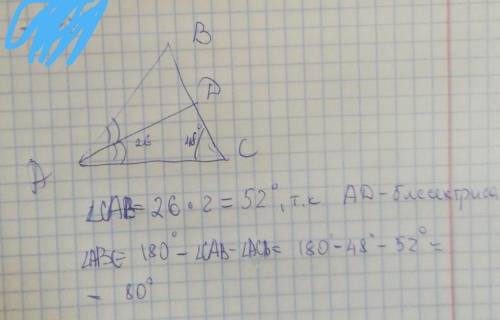 B
D
26
48°
A
C
∠CAB = 26 · 2 = 52°, т.к AD - биссектриса
∠ABC = 180° - ∠CAB - ∠ACB = 180° - 48° - 52° =
= 80°